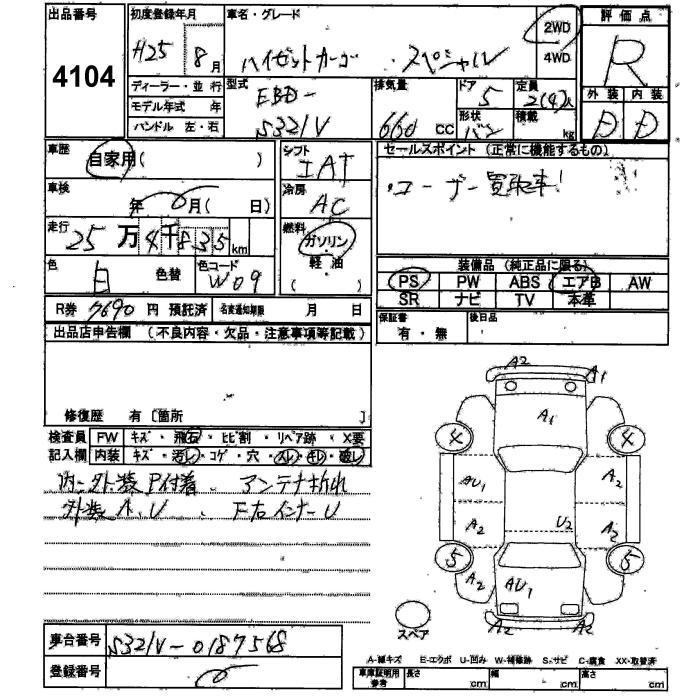 出品番号
4104
初度登録年月
H25 8月
車名・グレード
ハイゼットカーゴ スペシャル
2WD
4WD
評価点
R
外装 内装
D D
ディーラー・並行
モデル年式 年
ハンドル 左・右
型式
EBD-
S321V
排気量
660 CC
ドア
5
形状
バン
定員
2(4)人
積載
kg
車歴
自家用( )
車検
年 月( 日)
走行
25万4千835km
色
白
色替
色コード
W09
シフト
IAT
冷房
AC
燃料
ガソリン
軽・油
( )
セールスポイント (正常に機能するもの)
・ユーザー買取車!
装備品 (純正品に限る)
PS PW ABS エアB AW
SR ナビ TV 本革
保証書
有・無
後日品
R券 7690 円 預託済
名変通知期限 月 日
出品店申告欄 (不良内容・欠品・注意事項等記載)
修復歴 有 [箇所 ]
検査員
記入欄
FW キズ・飛石・ヒビ割・リペア跡・X要
内装 キズ・汚レ・コゲ・穴・スレ・キレ・破レ
内・外装P付着 アンテナ折れ
外装A.U. 下右インナーU
車台番号
S321V-0187568
登録番号
A2
A1
A1
4
4
AU1
A2
A2
U2
A2
5
5
A2
AU1
A2
A2
A2
スペア
A-線キズ E-エクボ U-凹み W-補修跡 S-サビ C-腐食 XX-取替済
車庫証明用
参考
長さ cm
幅 cm
高さ cm